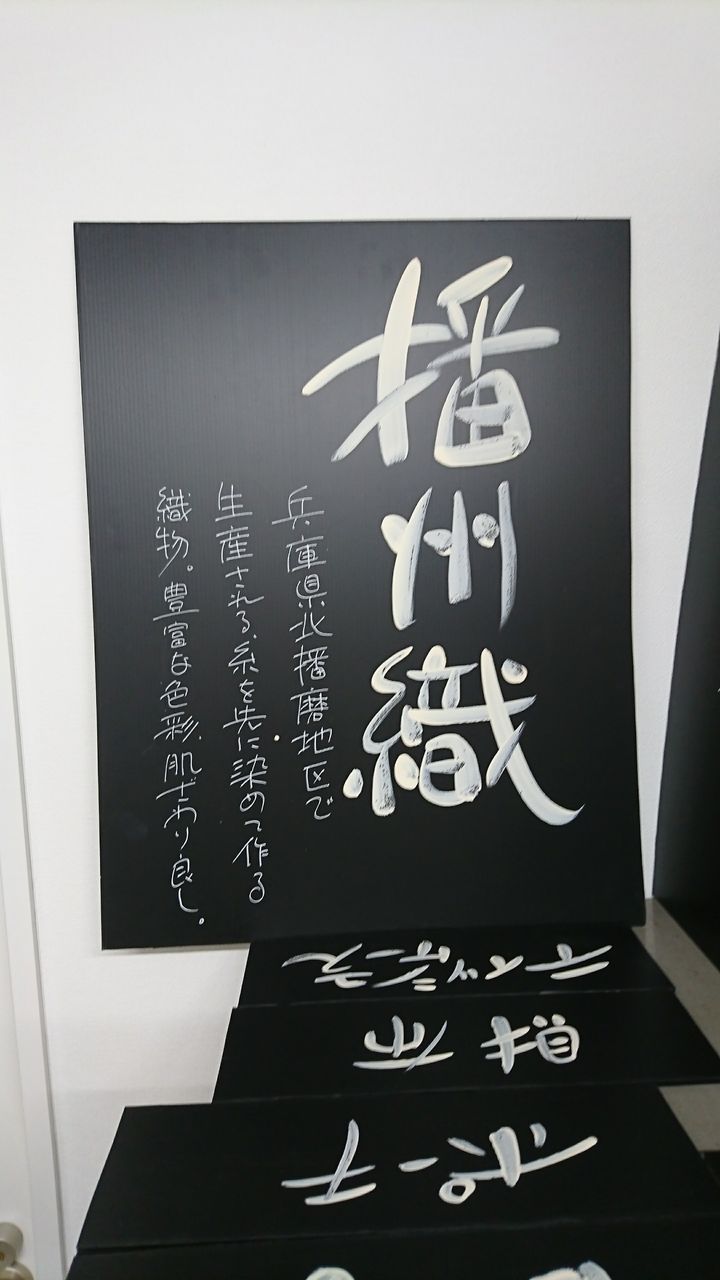 播州織
兵庫県北播磨地区で
生産される、糸を先に染めて作る
織物。豊富な色彩、肌ざわり良し。
財布
ポーチ